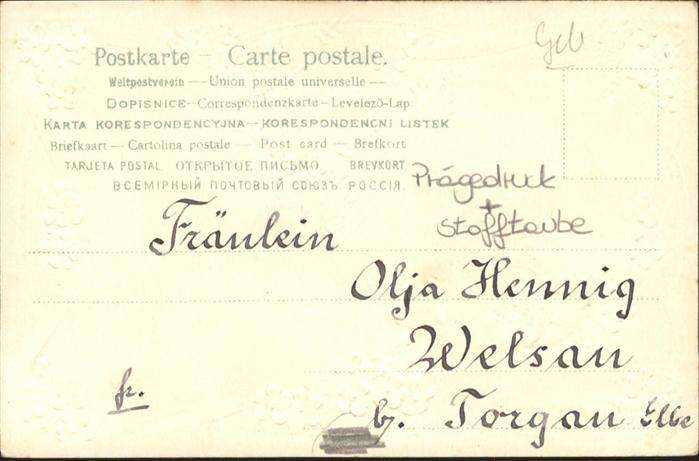 Geb
Postkarte – Carte postale.
Weltpostverein — Union postale universelle —
DOPISNICE – Correspondenzkarte – Levelező-Lap
KARTA KORESPONDENCYJNA — KORESPONDENCNI LISTEK
Briefkaart – Cartolina postale – Post card – Brefkort
TARJETA POSTAL ОТКРЫТОЕ ПИСЬМО. BREVKORT
ВСЕМІРНЫЙ ПОЧТОВЫЙ СОЮЗЪ. РОССІЯ.
Prägedruck
+
Stofftaube
Fräulein
Olja Hennig
Welsau
fr.
b. Torgau Elbe